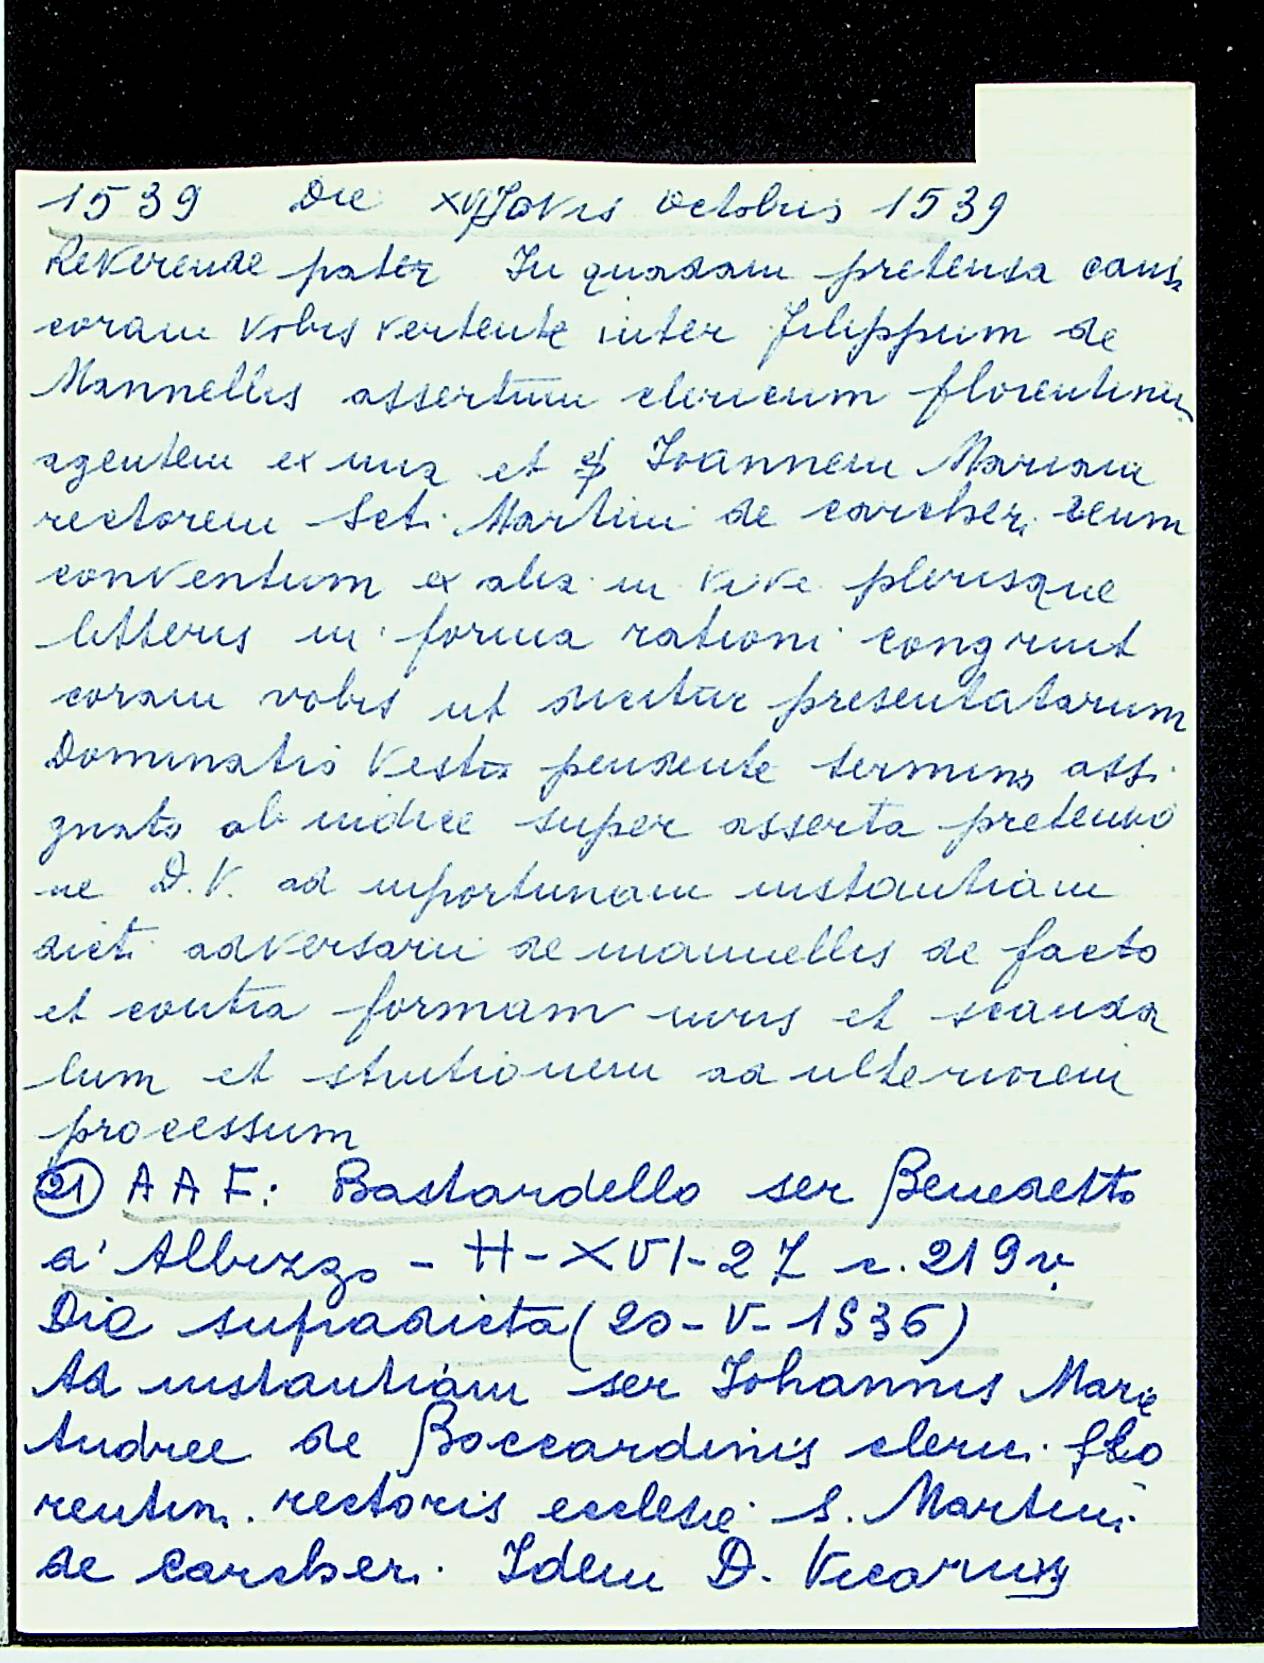 1539 Die xvj Jovis octobris 1539
Reverende pater In quadam pretensa caus.
coram vobis vertente inter filippum de
Mannellis assertum clericum florentinu
agentem ex una et Joannem Mariam
rectorem Scti. Martini de corcber. reum
conventum ex alia in vi ve plerisque
litteris in forma rationi congruit
coram vobis ut dicitur presentatarum
Dominatio Vestra pendente termino assi
gnato ab iudice super asserta pretensio
ne D.V. ad inportunam instantiam
dicti adversarii de mannellis de facto
et contra formam iuris et scanda
lum et struttionem ad ulteriorem
processum
21) A A F: Bastardello ser Benedetto
d'Albizzo - H-XVI-27 c. 219 v.
Die supradicta (20-V-1536)
Ad instantiam ser Johannis Marie
Andree de Boccardinis cleric. flo
rentin. rectoris ecclesie S. Martini
de carcber. Idem D. Vicarius